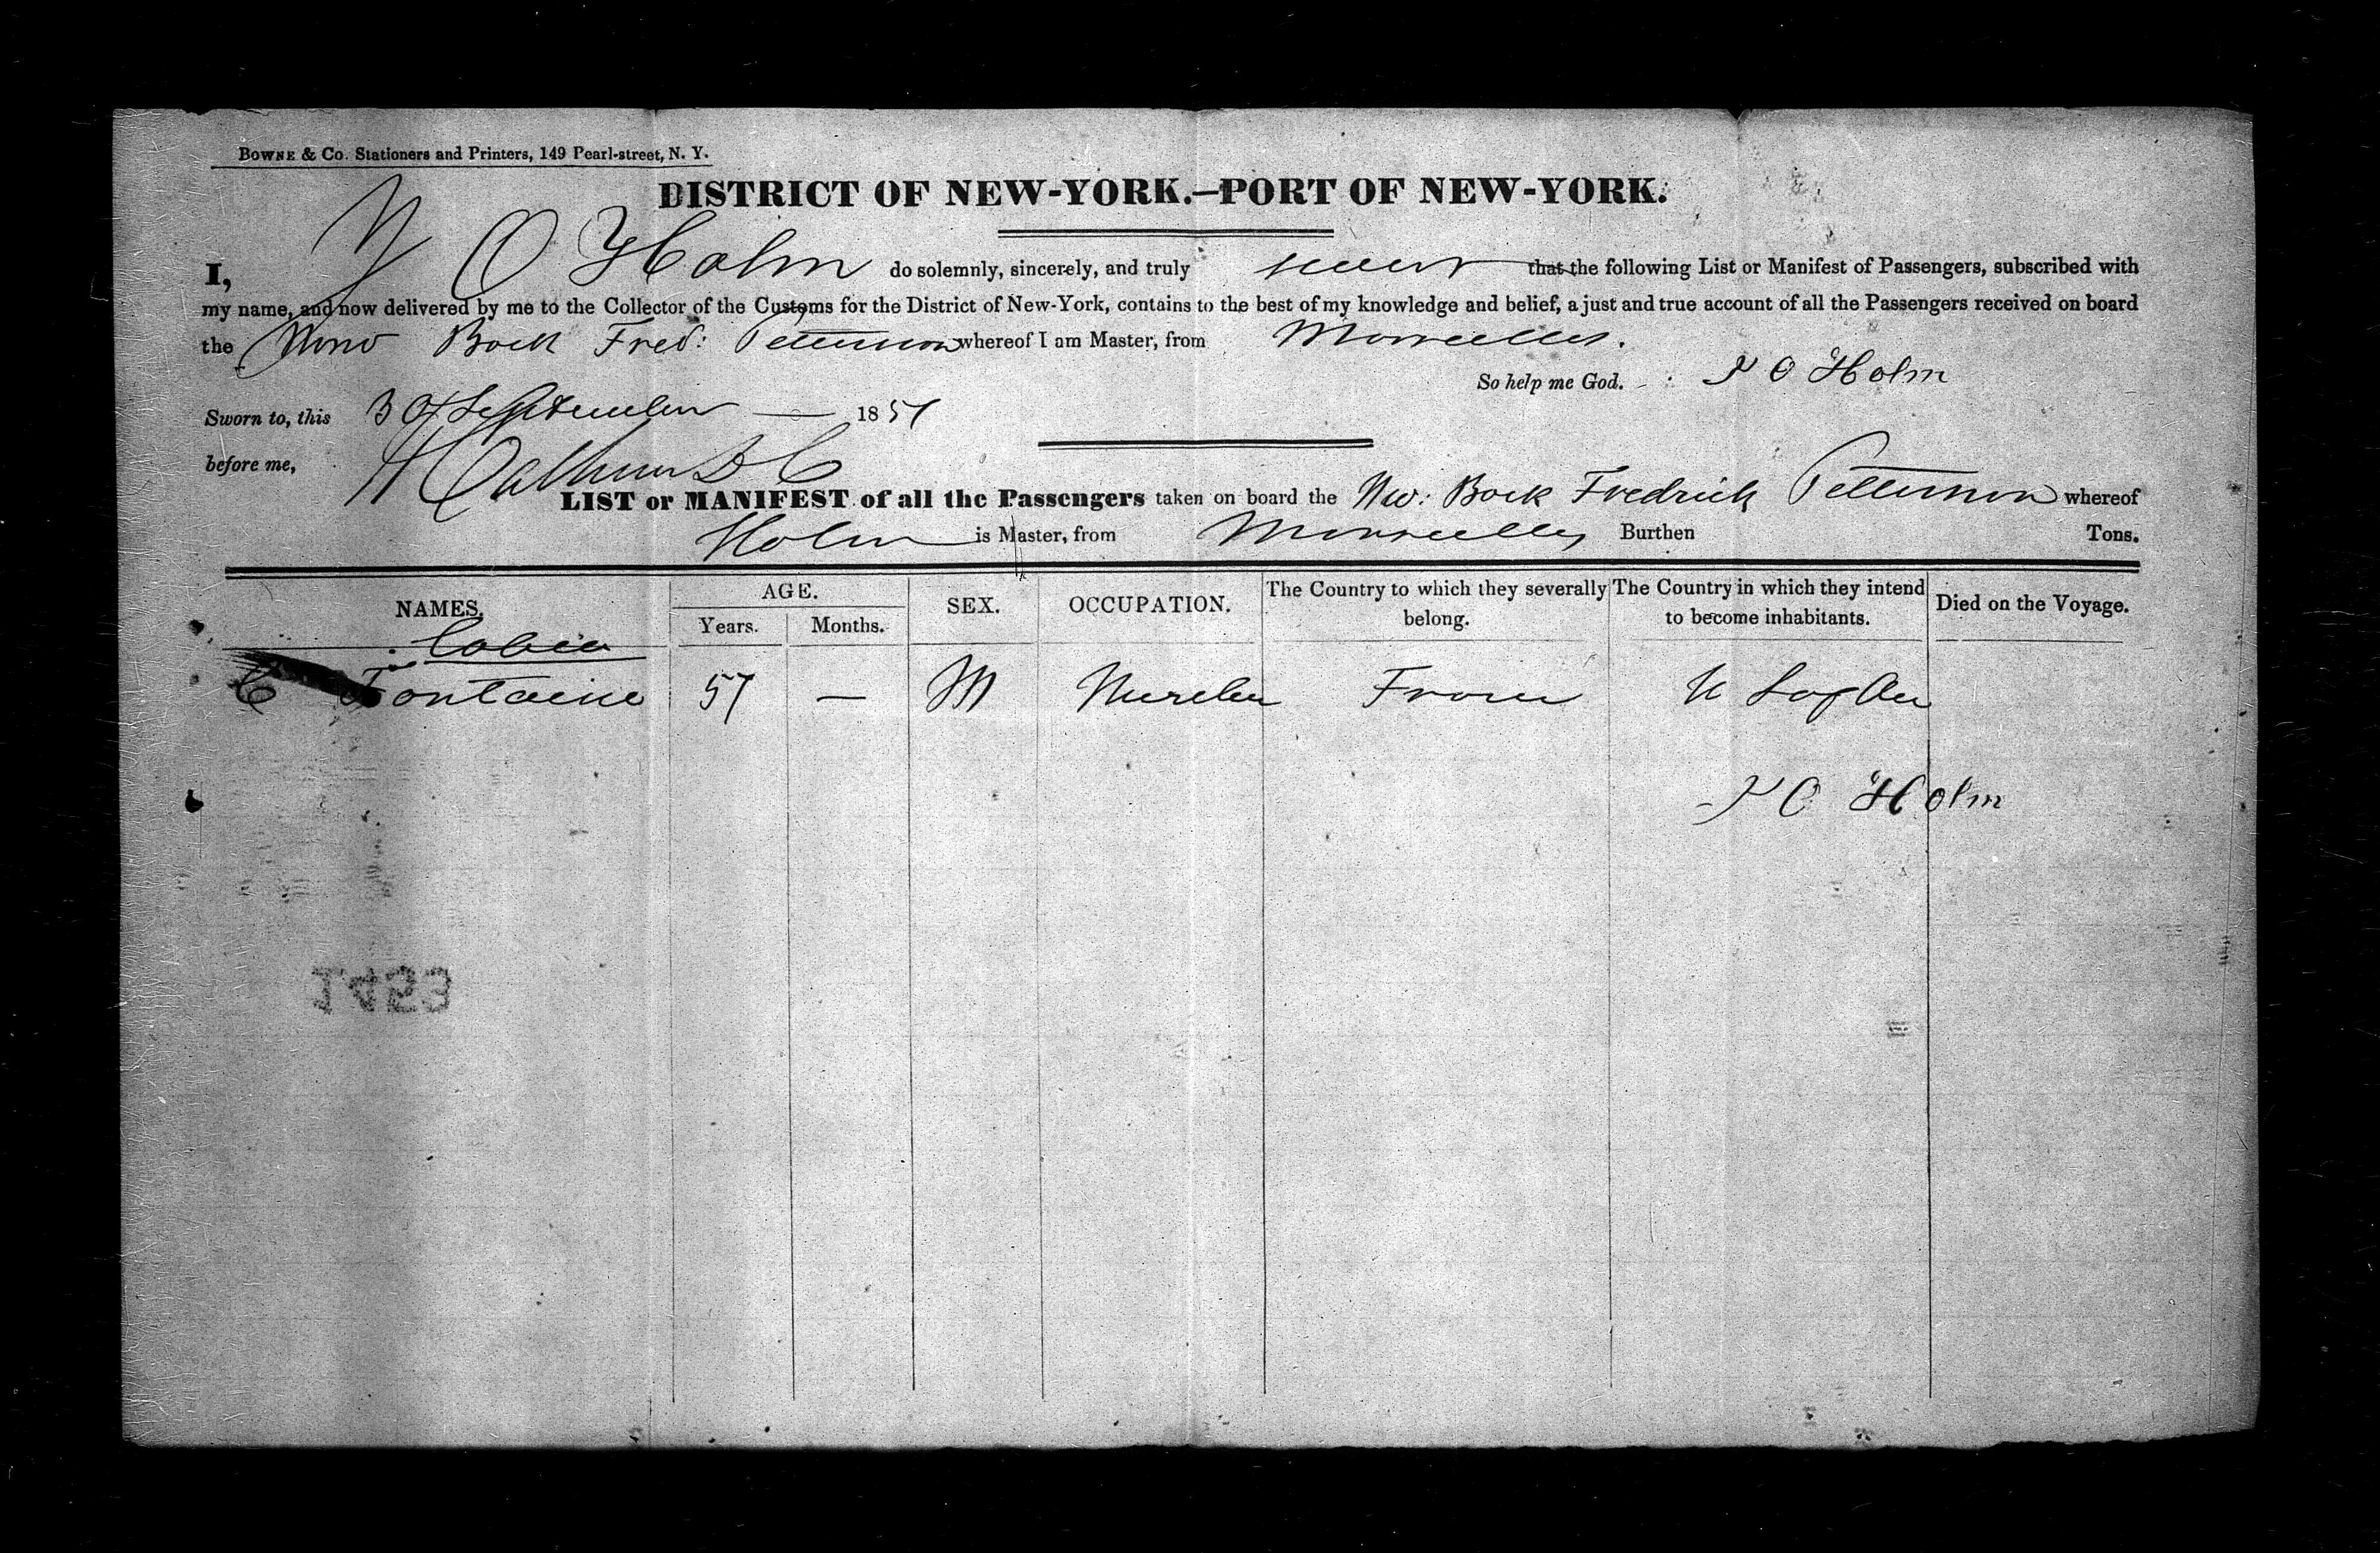 BOWNE & Co. Stationers and Printers, 149 Pearl-street, N. Y.
DISTRICT OF NEW-YORK.—PORT OF NEW-YORK.
I, O Holm do solemnly, sincerely, and truly swear that the following List or Manifest of Passengers, subscribed with
my name, and now delivered by me to the Collector of the Customs for the District of New-York, contains to the best of my knowledge and belief, a just and true account of all the Passengers received on board
the Bark Fred: Petterson whereof I am Master, from Marseilles.
So help me God. O Holm
Sworn to, this 30 September — 1851
before me,
LIST or MANIFEST of all the Passengers taken on board the Nw: Bark Fredrick Petterson whereof
Holm is Master, from Marseilles Burthen Tons.
NAMES. AGE. SEX. OCCUPATION. The Country to which they severally belong. The Country in which they intend to become inhabitants. Died on the Voyage.
Years. Months.
Cabin
C Fontaine 57 — M France U S of Am
O Holm